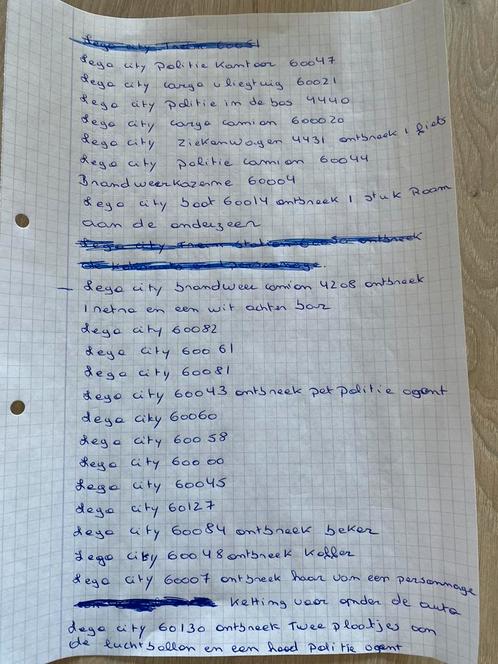 Lego city Trein 60051
Lego city politie kantoor 60047
Lego city cargo vliegtuig 60021
Lego city politie in de bos 4440
Lego city cargo camion 600020
Lego city ziekanwagen 4431 ontbreek 1 fiets
Lego city politie camion 60044
Brandweerkazerne 60004
Lego city boot 60014 ontbreek 1 stuk Room
aan de onderzeer
Lego city brandweer camion 4208 ontbreek
1 netro en een wit achter bar
Lego city 60082
Lego city 60061
Lego city 60081
Lego city 60043 ontbreek pet politie agent
Lego city 60060
Lego city 60058
Lego city 60000
Lego city 60045
Lego city 60127
Lego city 60084 ontbreek beker
Lego city 60048 ontbreek Koffer
Lego city 60007 ontbreek haar van een personnage
Ketting voor onder de auto
Lego city 60130 ontbreek Twee plaatjes aan
de luchtballon en een hoed politie agent